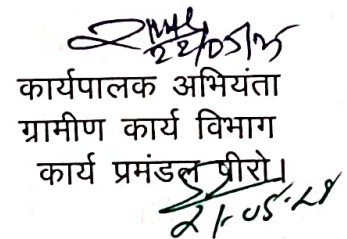 22/05/25
कार्यपालक अभियंता
ग्रामीण कार्य विभाग
कार्य प्रमंडल पीरो।